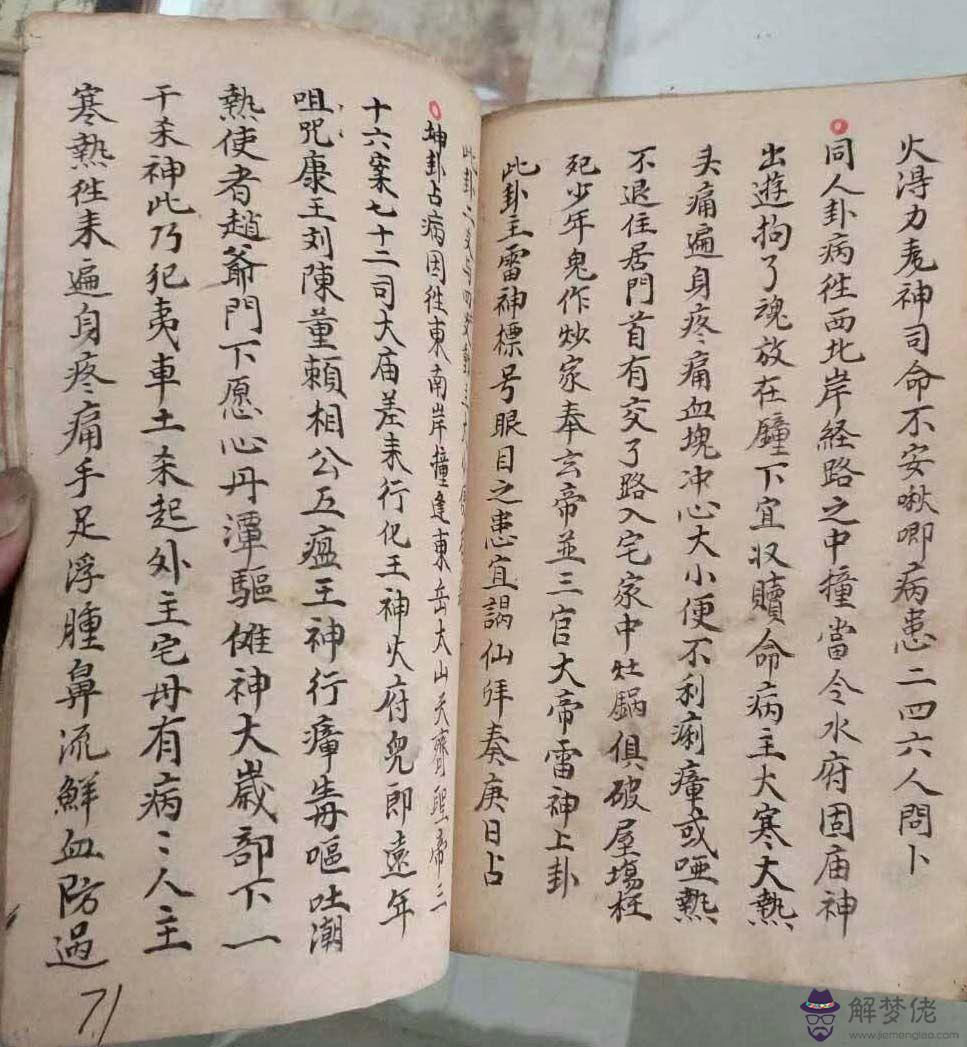 火得力灶神司命不安啾唧病患二四六人問卜
同人卦病往西北岸経路之中撞當令水府固庙神
出遊拘了魂放在廟下宜収贖命病主大寒大熱
头痛遍身疼痛血塊冲心大小便不利痢瘴或啞熱
不退住居門首有交了路入宅家中灶鍋俱破屋場枉
死少年鬼作炒家奉玄帝並三官大帝雷神上卦
此卦主雷神標号眼目之患宜謁仙拜奏庚日占
此卦二爻与四爻
坤卦占病因往東南岸撞逢東岳大山天齊聖帝三
十六案七十二司大庙差来行化王神火府兇郎遠年
咀咒康王刘陳董賴相公五瘟王神行瘴毒嘔吐潮
熱使者趙爺門下愿心丹潭驅傩神大歲部下一
干杀神此乃犯夷車土杀起外主宅母有病〻人主
寒熱往来遍身疼痛手足浮腫鼻流鮮血防過
71
解梦佬
www.jiemenglao.com